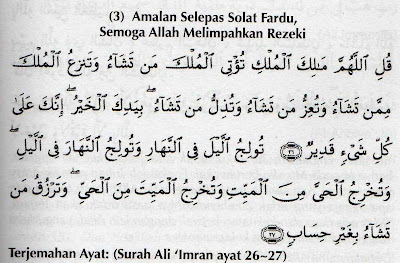 (3) Amalan Selepas Solat Fardu,
Semoga Allah Melimpahkan Rezeki
قُلِ ٱللَّهُمَّ مَٰلِكَ ٱلْمُلْكِ تُؤْتِى ٱلْمُلْكَ مَن تَشَآءُ وَتَنزِعُ ٱلْمُلْكَ
مِمَّن تَشَآءُ وَتُعِزُّ مَن تَشَآءُ وَتُذِلُّ مَن تَشَآءُ ۖ بِيَدِكَ ٱلْخَيْرُ ۖ إِنَّكَ عَلَىٰ
كُلِّ شَىْءٍ قَدِيرٌ ۝٢٦ تُولِجُ ٱلَّيْلَ فِى ٱلنَّهَارِ وَتُولِجُ ٱلنَّهَارَ فِى ٱلَّيْلِ ۖ
وَتُخْرِجُ ٱلْحَىَّ مِنَ ٱلْمَيِّتِ وَتُخْرِجُ ٱلْمَيِّتَ مِنَ ٱلْحَىِّ ۖ وَتَرْزُقُ مَن
تَشَآءُ بِغَيْرِ حِسَابٍ ۝٢٧
Terjemahan Ayat: (Surah Ali ‘Imran ayat 26~27)